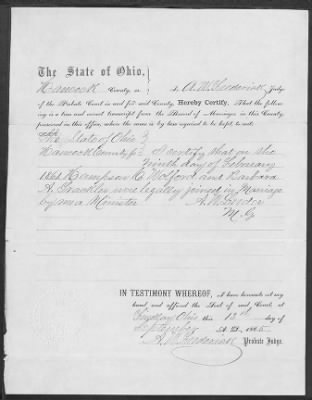 The State of Ohio,
Hancock County, ss I, A. W. Frederick Judge
of the Probate Court in and for said County, Hereby Certify, That the follow-
ing is a true and correct transcript from the Record of Marriages in this County
preserved in this office, where the same is by law required to be kept, to wit:
The State of Ohio
Hancock County ss I certify that on the
Ninth day of February
Hampson C. Wolford and Barbara
A. were legally joined in Marriage
by me a Minister A.
M. G
IN TESTIMONY WHEREOF, I have hereunto set my
hand and affixed the Seal of said Court, at
Findlay Ohio this 13th day of
September A. D., 1865
A. W. Frederick Probate Judge.